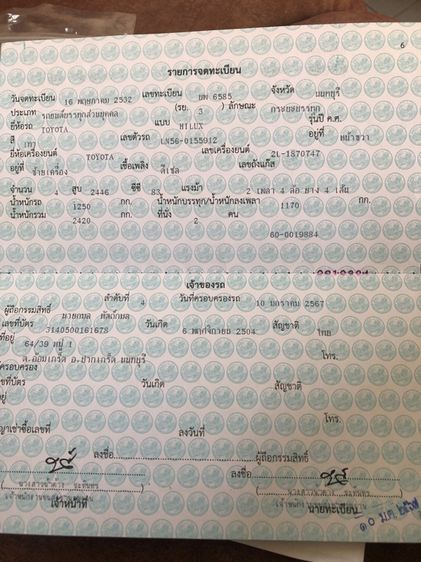 6
รายการจดทะเบียน
วันจดทะเบียน 16 พฤษภาคม 2532 เลขทะเบียน 6585 จังหวัด นนทบุรี
ประเภท รถยนต์บรรทุกส่วนบุคคล (รย. 3 ) ลักษณะ กระบะบรรทุก
ยี่ห้อรถ TOYOTA แบบ HILUX รุ่นปี ค.ศ.
สี เทา เลขตัวรถ LN56-0155912 อยู่ที่ หน้าขวา
ยี่ห้อเครื่องยนต์ TOYOTA เลขเครื่องยนต์ 2L-1870747
อยู่ที่ ซ้ายเครื่อง เชื้อเพลิง ดีเซล เลขถังแก๊ส
จำนวน 4 สูบ 2446 ซีซี 83 แรงม้า 2 เพลา 4 ล้อ ยาง 4 เส้น
น้ำหนักรถ 1250 กก. น้ำหนักบรรทุก/น้ำหนักลงเพลา 1170 กก.
น้ำหนักรวม 2420 กก. ที่นั่ง 2 คน
60-0019884
เจ้าของรถ
ลำดับที่ 4 วันที่ครอบครองรถ 10 มกราคม 2567
ผู้ถือกรรมสิทธิ์ นายกมล
เลขที่บัตร 3140500161678 วันเกิด 6 พฤศจิกายน 2504 สัญชาติ ไทย
ที่อยู่ 64/39 หมู่ 1
ต.อ้อมเกร็ด อ.ปากเกร็ด นนทบุรี โทร.
ครอบครอง
เลขที่บัตร วันเกิด สัญชาติ
อยู่
โทร.
ญาเช่าซื้อเลขที่ ลงวันที่
ลงชื่อ ผู้ถือกรรมสิทธิ์
ลงชื่อ
เจ้าหน้าที่ นายทะเบียน
๑๐ ม.ค. ๒๕๖๗